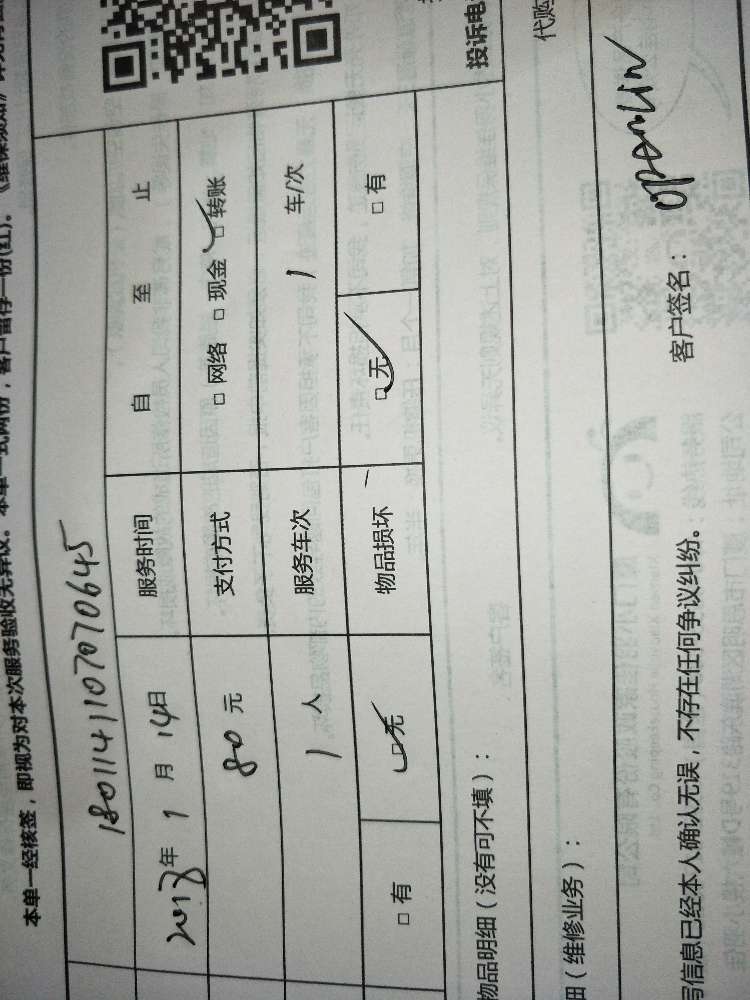 本单一经核签，即视为对本次服务验收无异议。本单一式两份，客户留存一份(红)。
1801141107070645
2018年 1 月 14日 服务时间 自 至 止
80元 支付方式 □ 网络 □ 现金 □ 转账
1 人 服务车次 1 车/次
□ 有 □ 无 物品损坏 □ 无 □ 有
物品明细（没有可不填）：
投诉电
细（维修业务）：
代购
写信息已经本人确认无误，不存在任何争议纠纷。
客户签名：